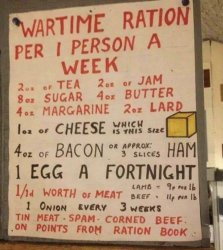 WARTIME RATION
PER 1 PERSON A
WEEK
2oz OF TEA 2oz OF JAM
8oz SUGAR 4oz BUTTER
4oz MARGARINE 2oz LARD
1oz OF CHEESE WHICH IS THIS SIZE
4oz OF BACON OR APPROX: 3 SLICES HAM
1 EGG A FORTNIGHT
1/1d WORTH OF MEAT LAMB = 9p PER lb
BEEF = 11p PER lb
1 ONION EVERY 3 WEEKS
TIN MEAT - SPAM - CORNED BEEF.
ON POINTS FROM RATION BOOK